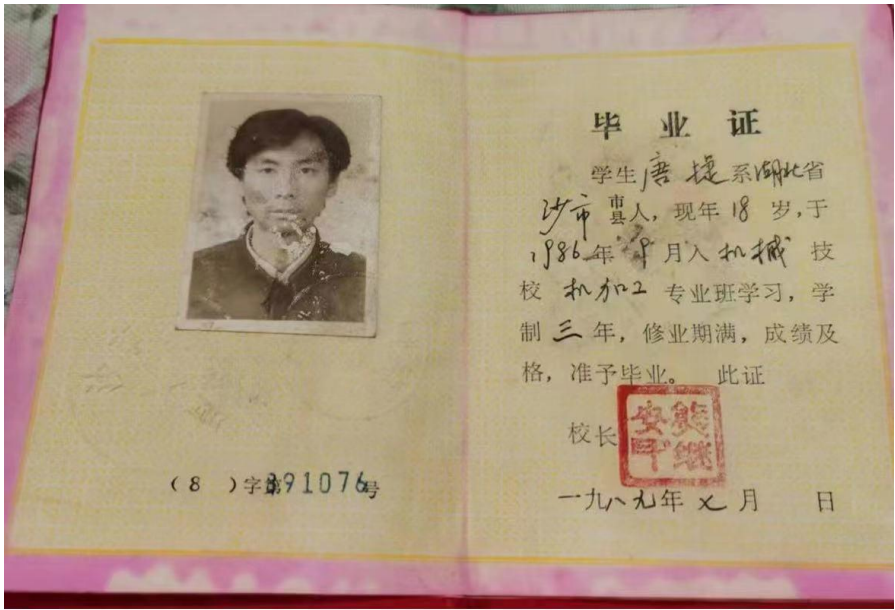 (8)字第891076号
毕业证
学生唐捷系湖北省
沙市市县人,现年18岁,于
1986年9月入机械技
校机加工专业班学习,学
制三年,修业期满,成绩及
格,准予毕业。此证
校长
一九八九年七月 日